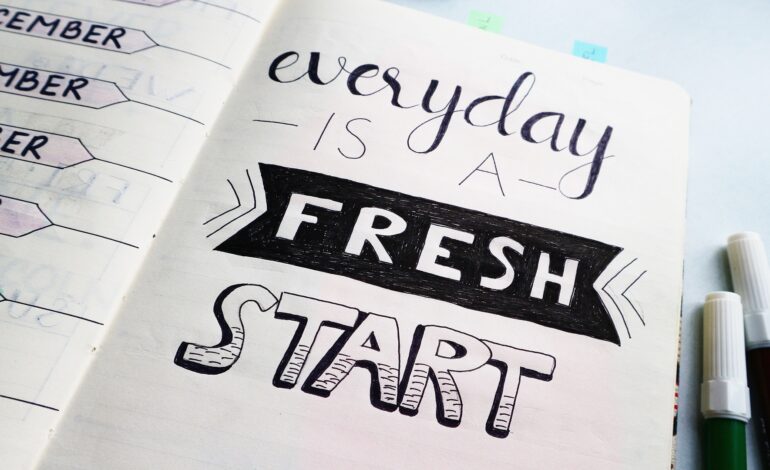 CEMBER
MBER
BER
everyday
– IS A –
FRESH
START